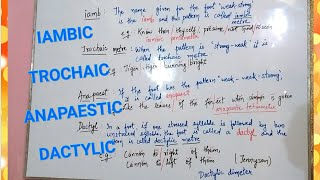 iamb: The name given for the foot "weak-strong"
is the iamb and this pattern is called iambic
metre.
IAMBIC
e.g Know then thyself; presume not God to scan
iambic pentametre
Trochaic metre: When the pattern is "strong-weak" it is
called trochaic metre.
TROCHAIC
e.g Tiger! Tiger! burning bright
Anapaest: If the foot has the pattern "weak-weak-strong",
ANAPAESTIC
it is called anapaest
e.g like the leaves of the forest when summer is green
(anapaestic tetrametre)
Dactyl: In a foot, if one stressed syllable is followed by two
unstressed syllables, the foot is called a dactyl and the
DACTYLIC
is called dactylic metre.
e.g. Cannon to right of them,
Cannon to left of them (Tennyson)
Dactylic dimeter